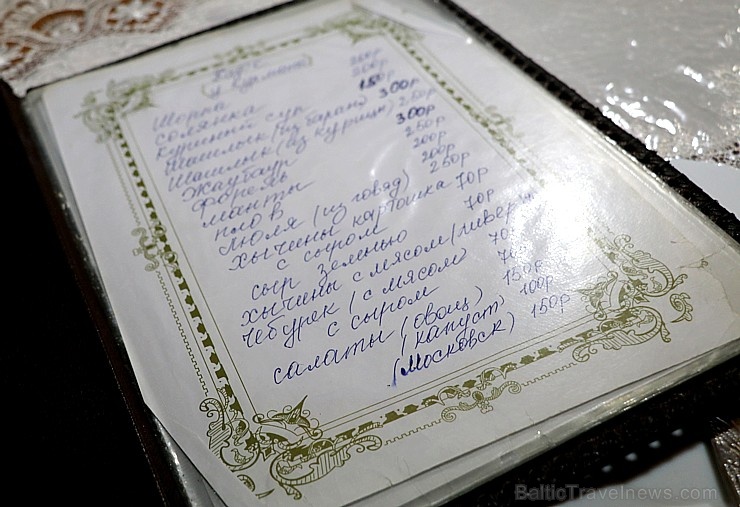 Кафе
Шорпа 250р
солянка 250р
куриный суп 150р
Шашлык (из баран) 300р
Шашлык (из курицы) 250р
Жаубаур 300р
форель 250р
манты 200р
плов 200р
люля (из говяд) 250р
хычины картошка 70р
с сыром 70р
сыр зеленью
хычины с мясом/ливер 70
чебурек (с мясом 70
с сыром
салаты (овощ) 150р
(капуст) 100р
(Московск) 150р
BalticTravelnews.com